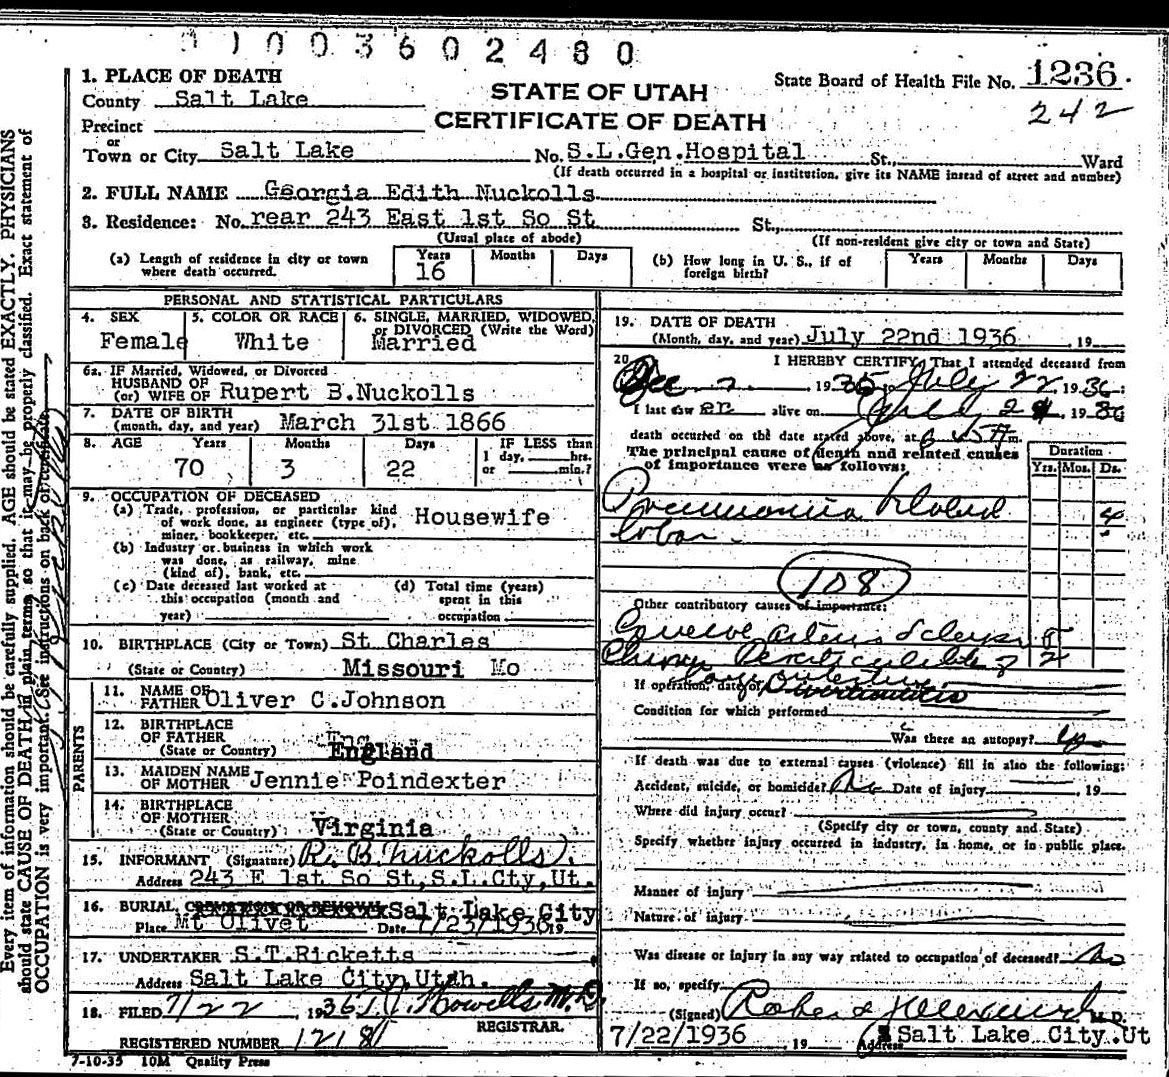 01003602480
1. PLACE OF DEATH
County Salt Lake
Precinct
or
Town or City Salt Lake
STATE OF UTAH
CERTIFICATE OF DEATH
State Board of Health File No. 1236.
242
No. S.L.Gen.Hospital St., Ward
(If death occurred in a hospital or institution, give its NAME instead of street and number)
2. FULL NAME Georgia Edith Nuckolls
3. Residence: No. rear 243 East 1st So St St.,
(Usual place of abode) (If non-resident give city or town and State)
(a) Length of residence in city or town where death occurred. Years 16 Months Days
(b) How long in U. S., if of foreign birth? Years Months Days
PERSONAL AND STATISTICAL PARTICULARS
4. SEX Female
5. COLOR OR RACE White
6. SINGLE, MARRIED, WIDOWED, or DIVORCED (Write the Word) Married
6a. IF Married, Widowed, or Divorced
HUSBAND OF
(or) WIFE OF Rupert B.Nuckolls
7. DATE OF BIRTH
(month, day, and year) March 31st 1866
8. AGE Years Months Days IF LESS than
70 3 22 1 day, hrs.
or min.?
9. OCCUPATION OF DECEASED
(a) Trade, profession, or particular kind
of work done, as engineer (type of), Housewife
miner, bookkeeper, etc.
(b) Industry or business in which work
was done, as railway, mine
(kind of), bank, etc.
(c) Date deceased last worked at
this occupation (month and
year)
(d) Total time (years)
spent in this
occupation
10. BIRTHPLACE (City or Town) St Charles
(State or Country) Missouri Mo
PARENTS
11. NAME OF
FATHER Oliver C.Johnson
12. BIRTHPLACE
OF FATHER
(State or Country) England
13. MAIDEN NAME
OF MOTHER Jennie Poindexter
14. BIRTHPLACE
OF MOTHER
(State or Country) Virginia
15. INFORMANT (Signature) R. B. Nuckolls.
Address 243 E 1st So St,S.L.Cty,Ut.
16. BURIAL, CREMATION OR REMOVAL Salt Lake City
Place Mt Olivet Date 7/23/1936 19
17. UNDERTAKER S.T.Ricketts
Address Salt Lake City,Utah.
18. FILED 7/22, 1936 Howells M.D.
REGISTRAR.
REGISTERED NUMBER 1218
7-10-35 10M Quality Press
19. DATE OF DEATH
(Month, day, and year) July 22nd 1936 , 19
20 I HEREBY CERTIFY, That I attended deceased from
Dec 1935, July 22 1936:
I last saw er alive on July 1936
death occurred on the date stated above, at 6 45 A m.
The principal cause of death and related causes
of importance were as follows:
Duration
Yrs. Mos. Ds.
Pneumonia
Lobar.
4
108
Other contributory causes of importance:
5
Chronic
2
If operation, date of
Condition for which performed
Was there an autopsy?
If death was due to external causes (violence) fill in also the following:
Accident, suicide, or homicide? No Date of injury , 19
Where did injury occur?
(Specify city or town, county and State)
Specify whether injury occurred in industry, in home, or in public place.
Manner of injury
Nature of injury
Was disease or injury in any way related to occupation of deceased? No
If so, specify
(Signed) M.D.
7/22/1936 , 19 Address Salt Lake City.Ut
Every item of information should be carefully supplied. AGE should be stated EXACTLY. PHYSICIANS
should state CAUSE OF DEATH in plain terms, so that it may be properly classified. Exact statement of
OCCUPATION is very important. (See instructions on back of certificate.